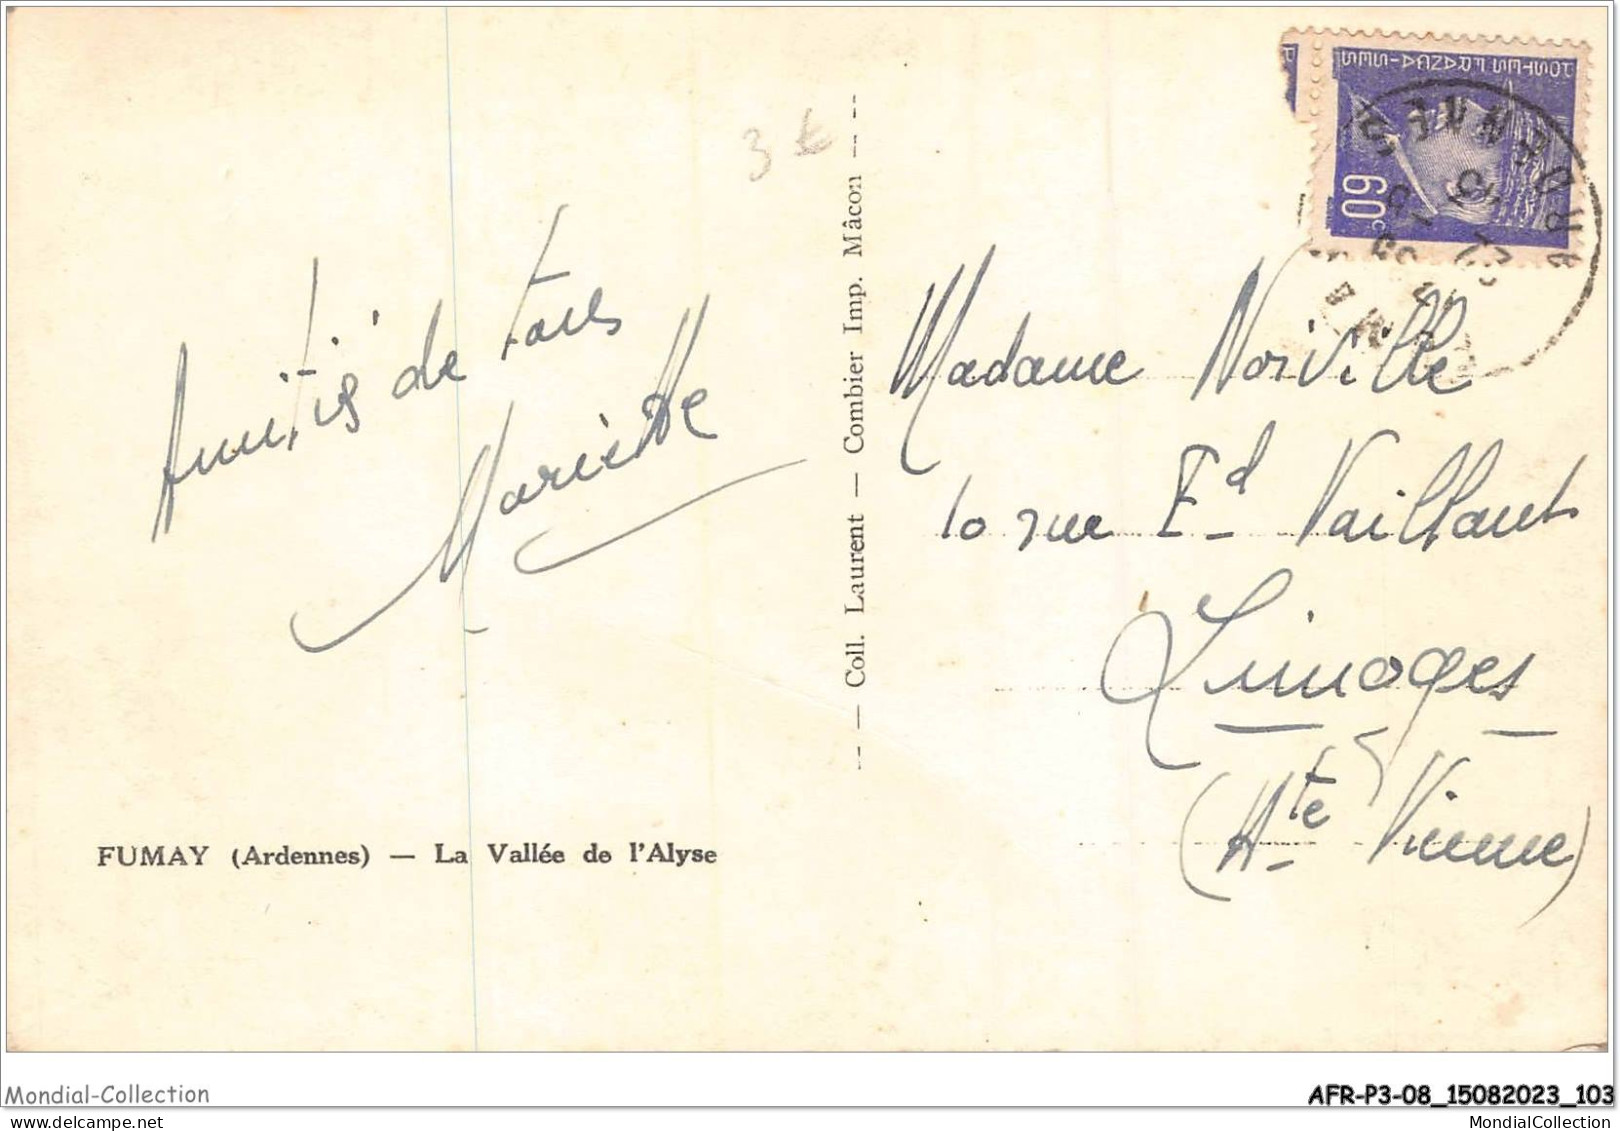 3 €
Amitiés de tous
Mariette
FUMAY (Ardennes) — La Vallée de l'Alyse
— Coll. Laurent — Combier Imp. Mâcon —
POSTES FRANÇAISES
60c
Madame Noiville
10 rue Ed Vaillant
Limoges
(Hte Vienne)
Mondial-Collection
AFR-P3-08_15082023_103
www.delcampe.net
MondialCollection